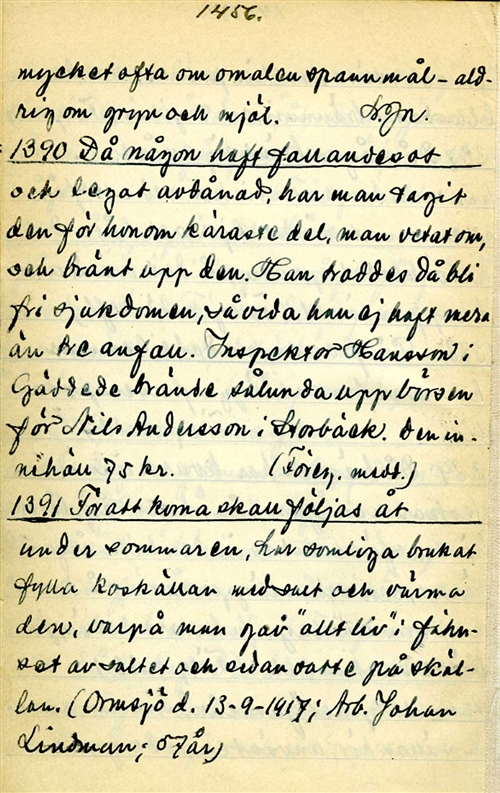 1456.
mycket ofta om omalen spannmål – ald-
rig om gryn och mjöl. D. Jn.
1390 Då någon haft fallandesot
och legat avdånad, har man tagit
den för honom käraste del, man vetat om,
och bränt upp den. Han troddes då bli
fri sjukdomen, såvida han ej haft mera
än tre anfall. Inspektor Hansson i
Gäddede brände sålunda upp börsen
för Nils Andersson i Storbäck. Den in-
nehöll 75 kr. (Föreg. medd.)
1391 För att korna skall följas åt
under sommaren, har somliga brukat
fylla koskällan med salt och värma
den, varpå man gav "allt liv" i fähu-
set av saltet och sedan satte på skäl-
lan. (Ormsjö d. 13-9-1917; Arb. Johan
Lindman; 57 år)